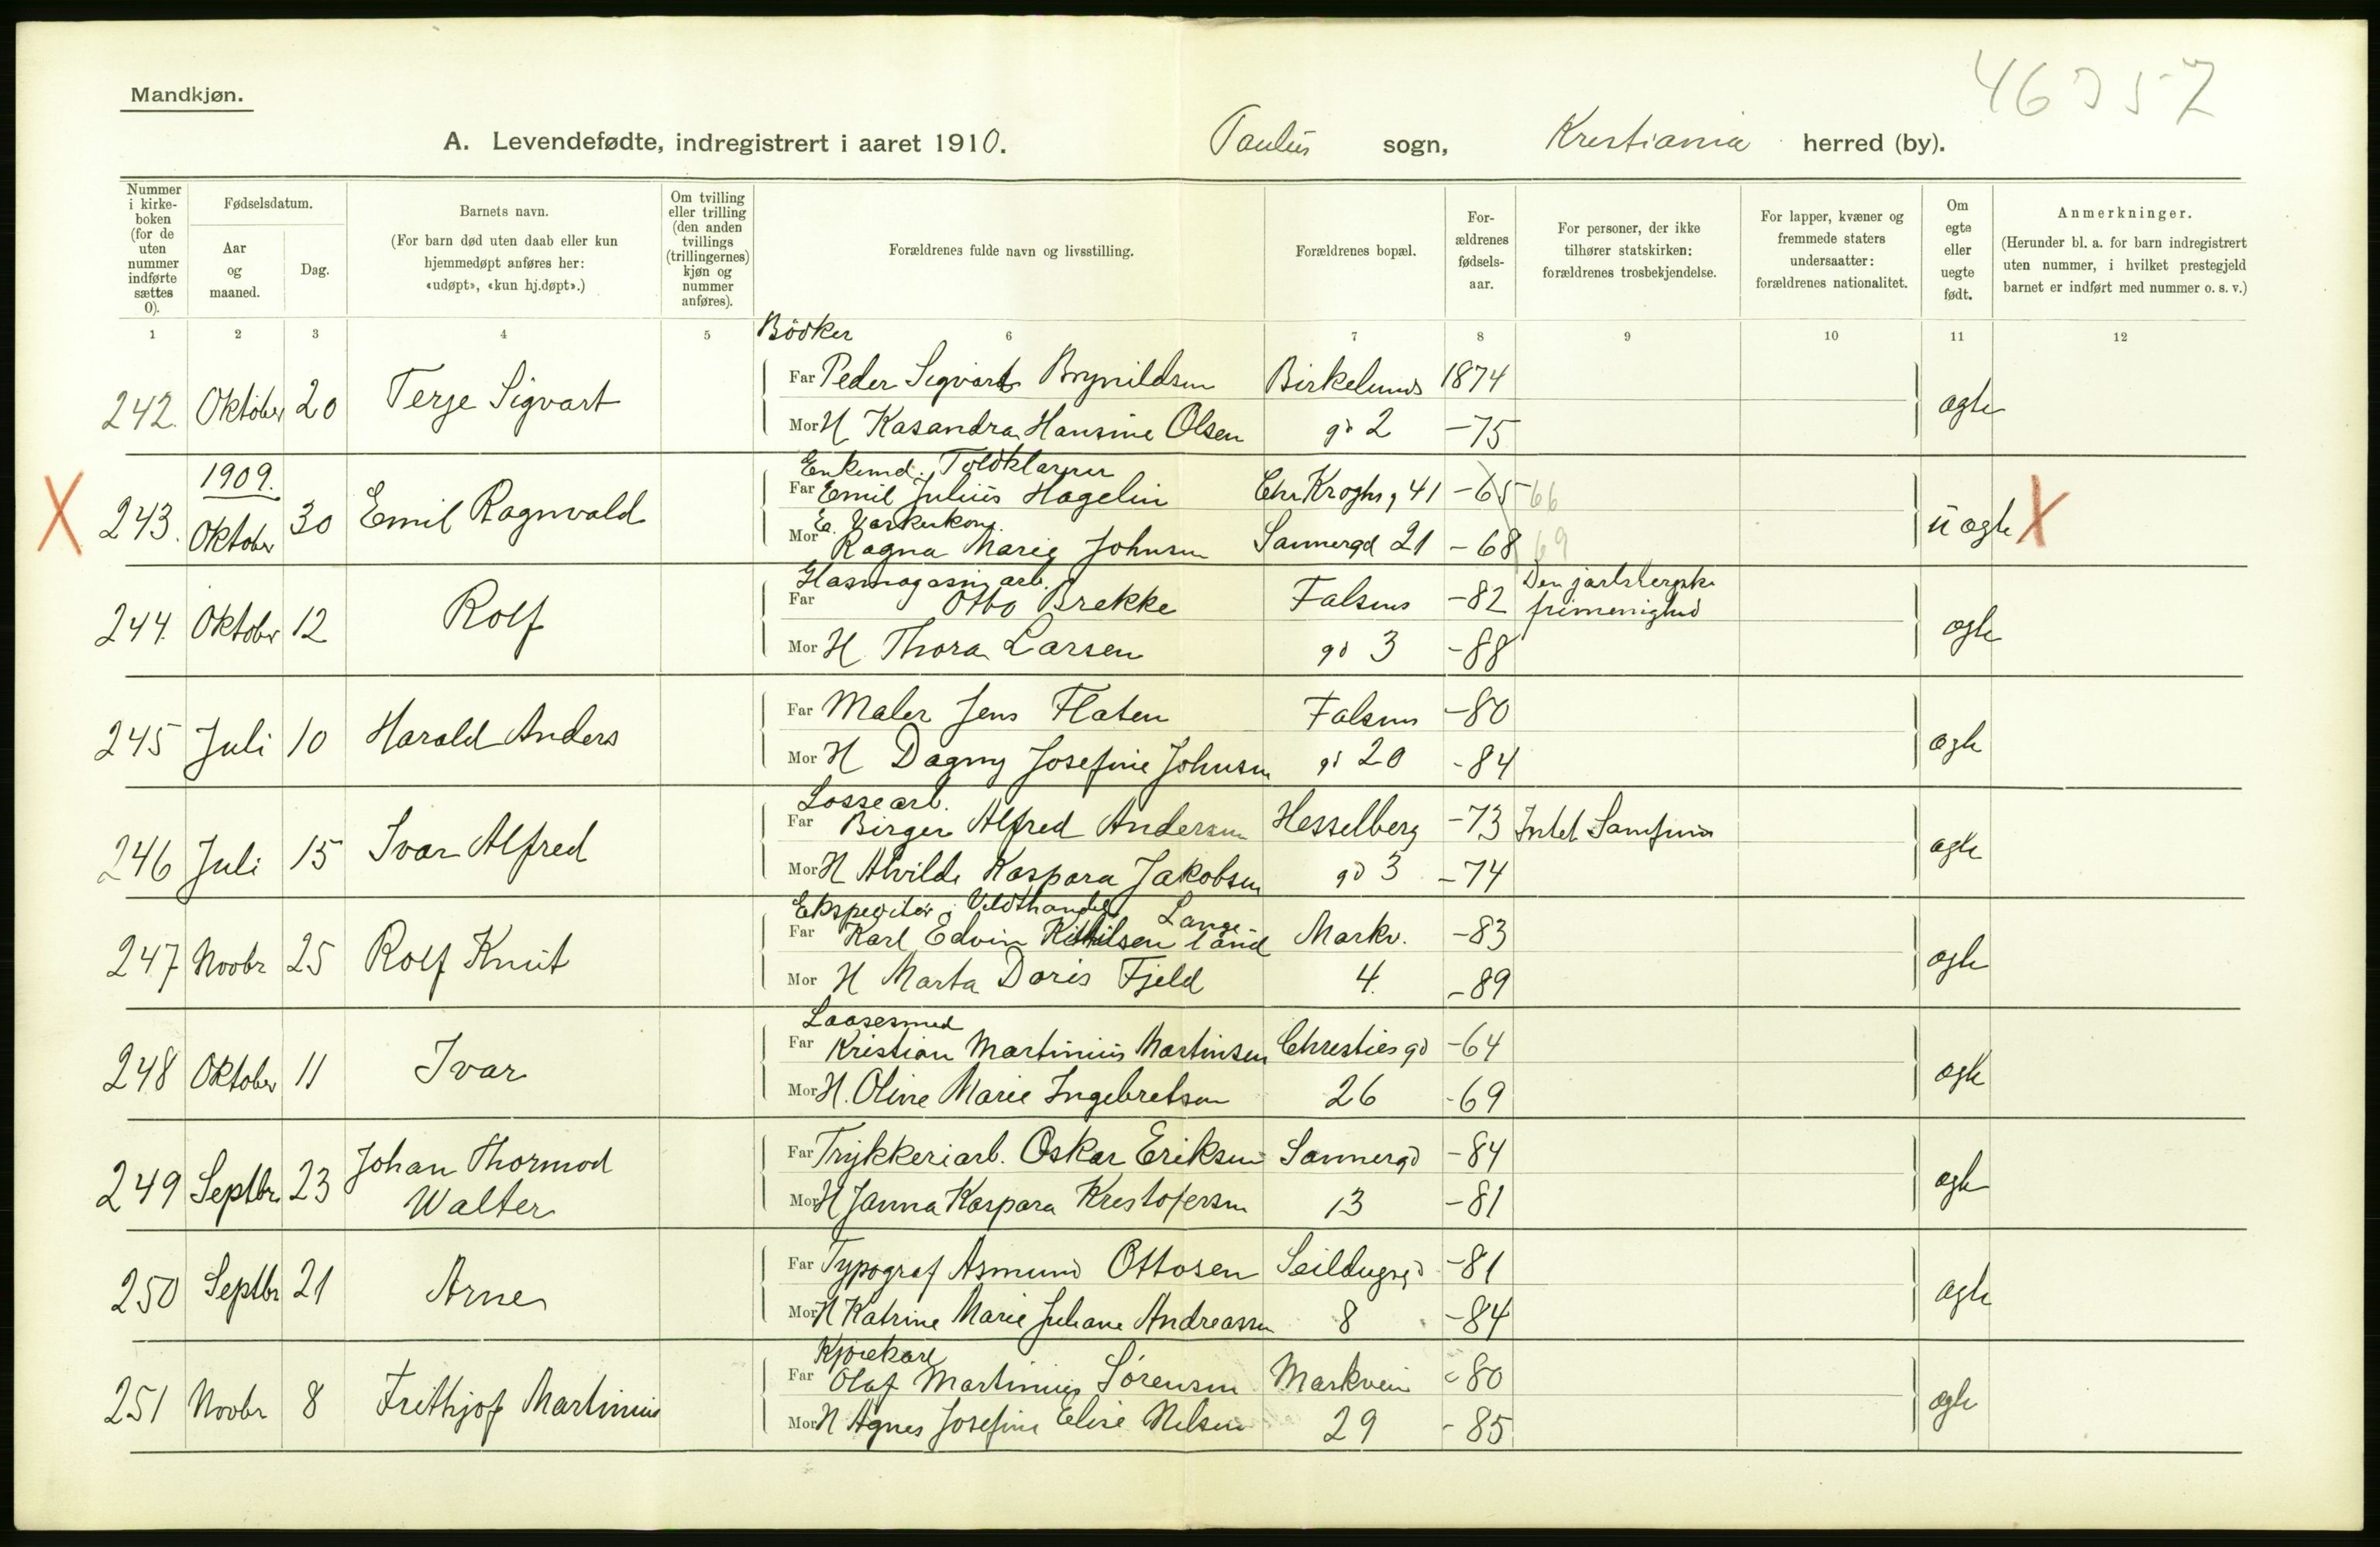 46357
Mandkjøn.
A. Levendefødte, indregistrert i aaret 1910. Paulus sogn, Kristiania herred (by).
Nummer i kirkeboken (for de uten nummer indførte sættes 0).
Fødselsdatum.
Aar og maaned.
Dag.
Barnets navn.
(For barn død uten daab eller kun hjemmedøpt anføres her: «udøpt», «kun hj.døpt».)
Om tvilling eller trilling (den anden tvillings (trillingernes) kjøn og nummer anføres).
Forældrenes fulde navn og livsstilling.
Forældrenes bopæl.
Forældrenes fødselsaar.
For personer, der ikke tilhører statskirken: forældrenes trosbekjendelse.
For lapper, kvæner og fremmede staters undersaatter: forældrenes nationalitet.
Om egte eller uegte født.
Anmerkninger.
(Herunder bl. a. for barn indregistrert uten nummer, i hvilket prestegjeld barnet er indført med nummer o. s. v.)
1 2 3 4 5 6 7 8 9 10 11 12
Bödker
242. Oktober 20 Terje Sigvart Far Peder Sigvart Brynildsen Birkelunds 1874 ægte
Mor H Kasandra Hansine Olsen gd 2 -75
1909.
Enkemd. Toldklarerer
X 243. Oktober 30 Emil Ragnvald Far Emil Julius Hagelin Chr Kroghs g 41 -65 66 uægte X
E. Vaskekone
Mor Ragna Marie Johnsen Sannergd 21 -68 69
Glasmagasinarb.
244. Oktober 12 Rolf Far Otto Brekke Falsens -82 Den jarlsbergske frimenighed ægte
Mor H Thora Larsen gd 3 -88
245 Juli 10 Harald Anders Far Maler Jens Flaten Falsens -80 ægte
Mor H Dagny Josefine Johnsen gd 20 -84
Lossearb.
246 Juli 15 Ivar Alfred Far Birger Alfred Andersen Hesselberg -73 Intet Samfund ægte
Mor H Alvilde Kaspara Jakobsen gd 3 -74
Ekspeditör i Vildthandel
247 Novbr 25 Rolf Knut Far Karl Edvin Langeland Markv. -83 ægte
Mor H Marta Doris Fjeld 4. -89
Laasesmed
248 Oktober 11 Ivar Far Kristian Martinius Martinsen Christies gd -64 ægte
Mor H. Oline Marie Ingebretsen 26 -69
249 Septbr. 23 Johan Thormod Walter Far Trykkeriarb. Oskar Eriksen Sannergd -84 ægte
Mor H Janna Kaspara Kristofersen 13 -81
250 Septbr 21 Arne Far Typograf Asmund Ottosen Seildugsgd -81 ægte
Mor H Katrine Marie Juliane Andreassen 8 -84
Kjørekarl
251 Novbr 8 Frithjof Martinius Far Olaf Martinius Sörensen Markvein -80 ægte
Mor H Agnes Josefine Elise Nilsen 29 -85